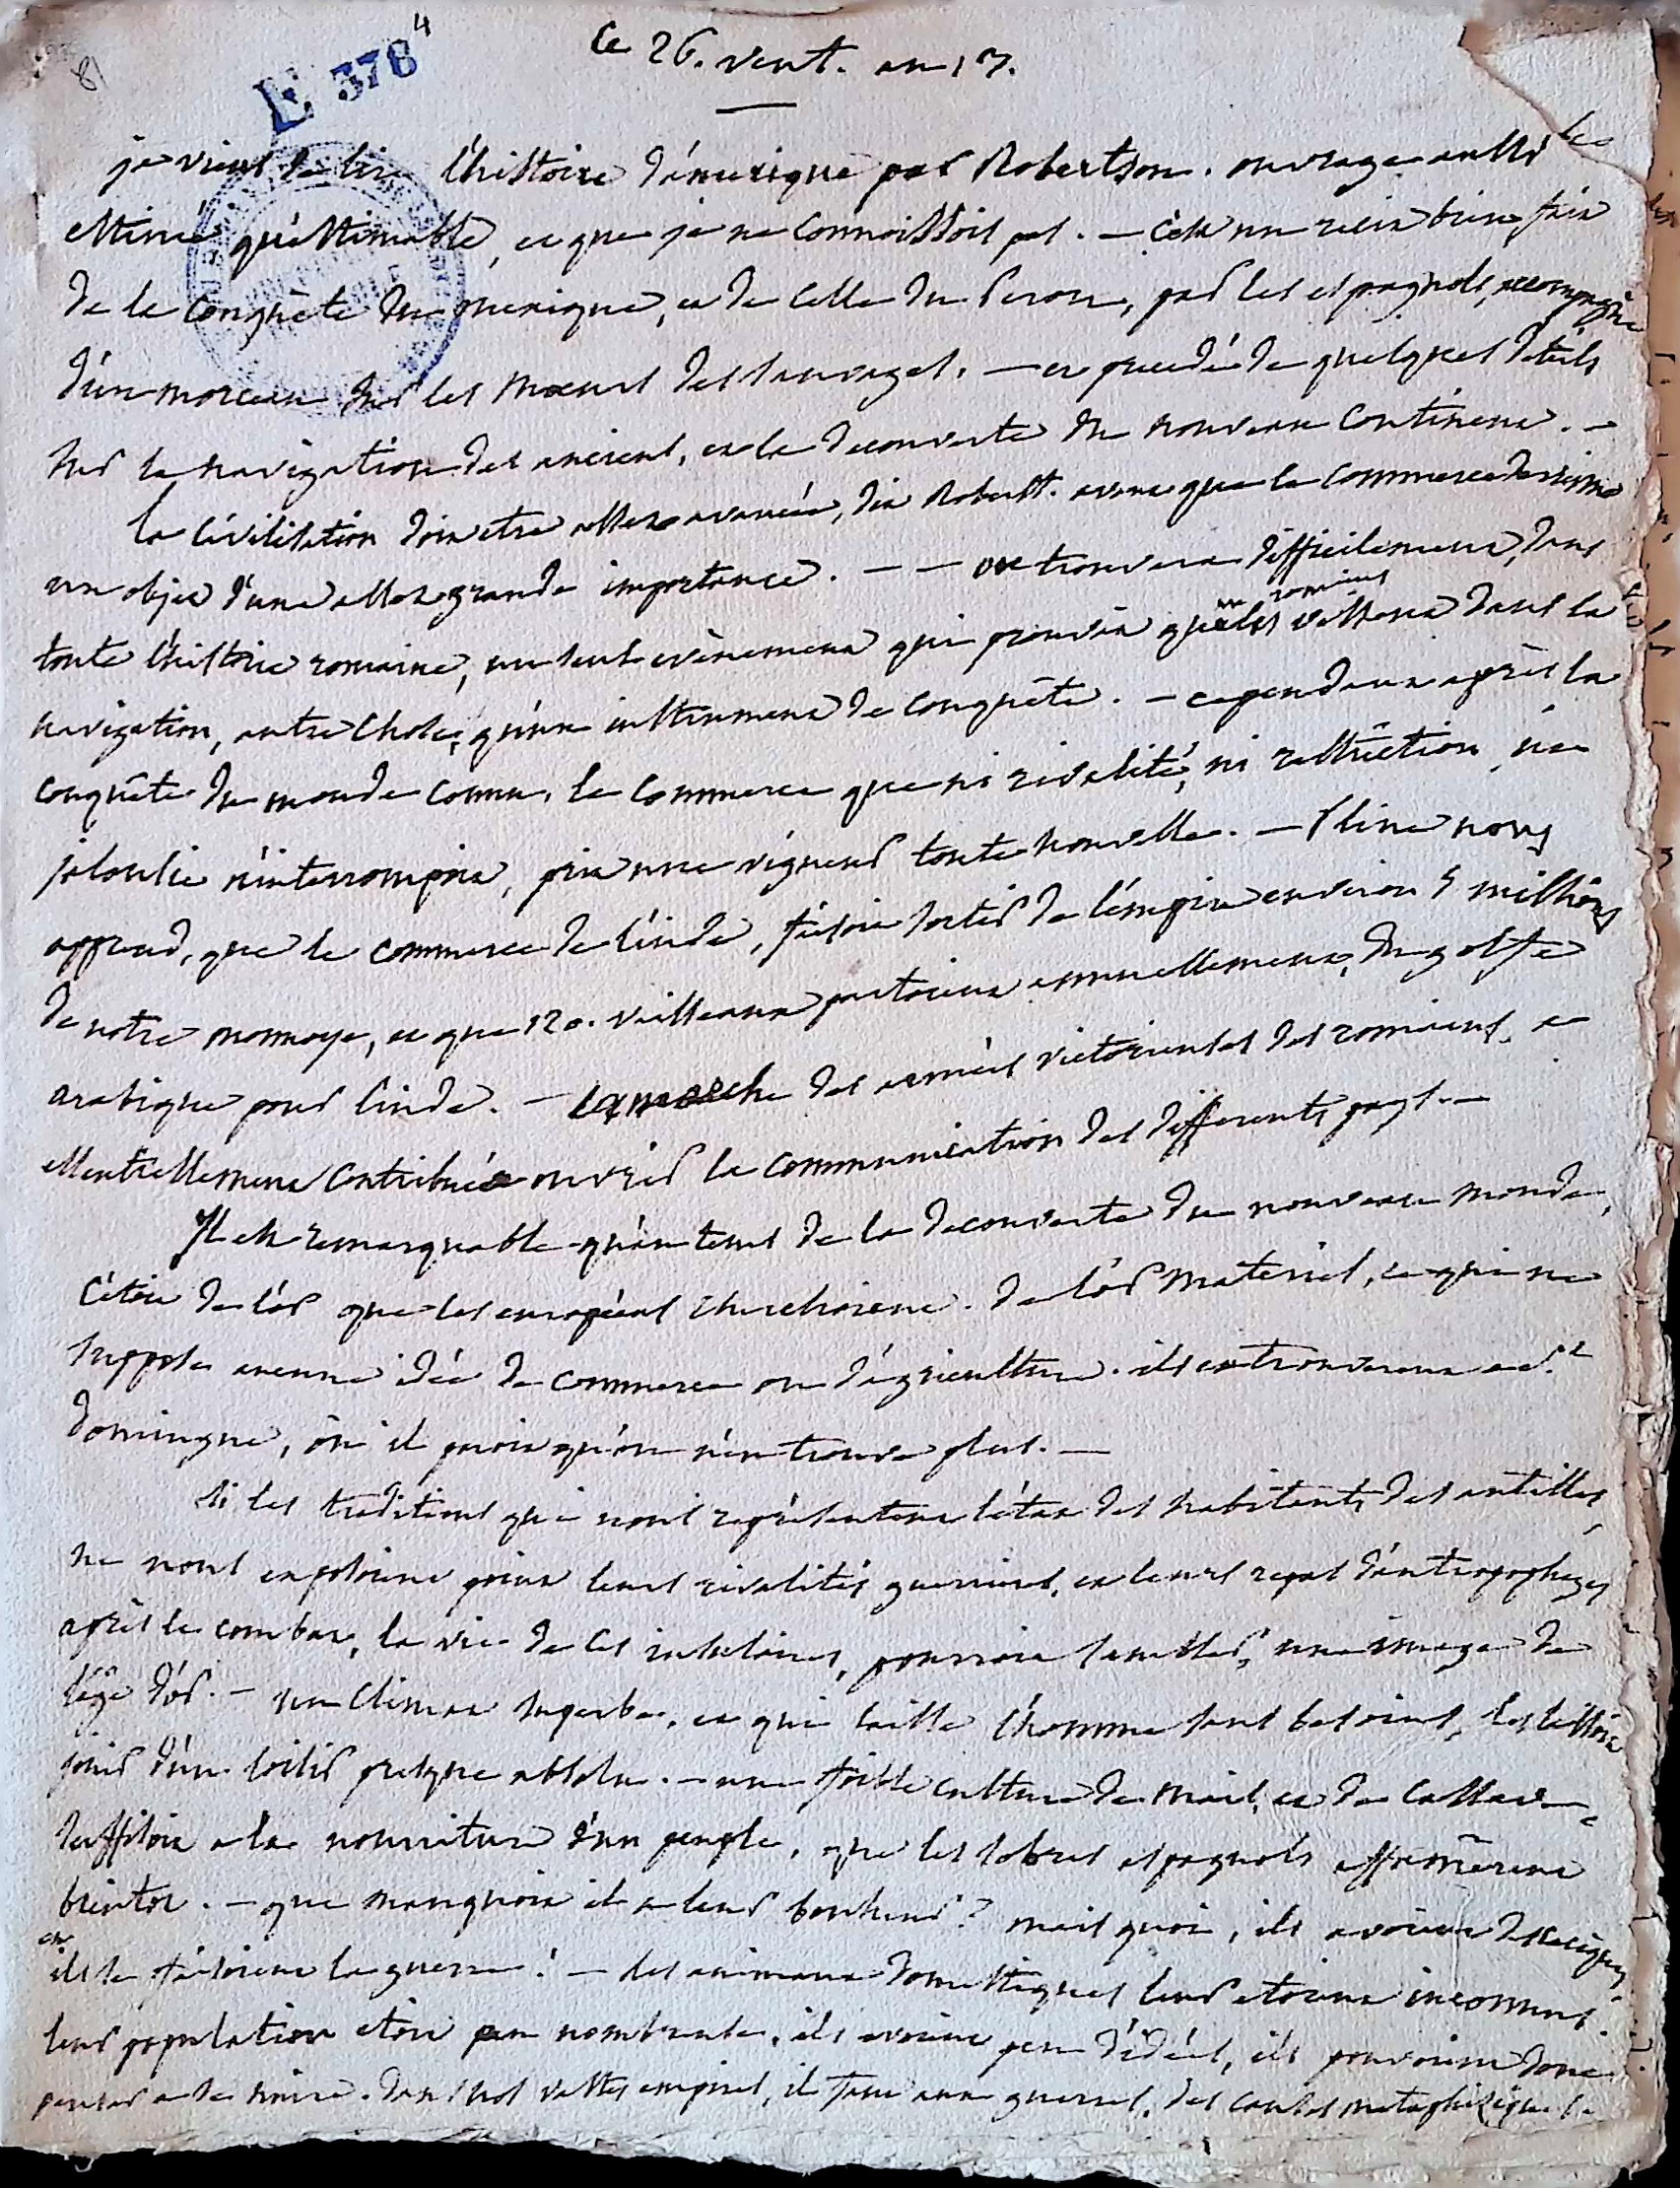 81
E 378 4
Ce 26. vent. an 13.
je viens de lire l'histoire d'amerique par Robertson. ouvrage aussi
estimé qu'estimable, et que je ne connoissois pas. — C'est un recit bien fait
de la conquête du mexique, et de celle du Perou, par les espagnols, accompagné
d'un morceau sur les moeurs des sauvages. — et precedé de quelques détails
sur la navigation des anciens, et la decouverte du nouveau continent. —
la civilisation doit etre assez avancée, dit Roberts. avant que le commerce devienne
un objet d'une assez grande importance. — — on trouvera difficilement, dans
toute l'histoire romaine, un seul evènement qui prouvât que les romains vissent dans la
navigation, autre chose, qu'un instrument de conquête. — cependant après la
conquête du monde connu, le commerce que ni rivalité, ni restriction, ni
jalousie n'interrompoit, prit une vigueur toute nouvelle. — Pline nous
apprend, que le commerce de l'inde, faisoit sortir de l'empire environ 5 millions
de notre monnoye, et que 120. vaisseaux partoient annuellement, du golfe
arabique pour l'inde. — la marche des armées victorieuses des romains, a
essentiellement contribué a ouvrir la communication des differents pays. —
Il est remarquable qu'au tems de la decouverte du nouveau monde,
c'étoit de l'or que les européens cherchoient. de l'or materiel, ce qui ne
suppose aucune idée de commerce ou d'agriculture. ils en trouverent a St
domingue, où il paroit qu'on n'en trouve plus. —
si les traditions qui nous représentent l'état des habitants des antilles,
ne nous exposoient point leurs rivalités guerrieres, et leurs repas d'antropophages
après le combat, la vie de ces insulaires, pourroit sembler, une image de
l'âge d'or. — un climat superbe, et qui laisse l'homme sans besoins, les laissoit
jouir d'un loisir presque absolu. — une foible culture de maïs, et de cassave
suffisoit a la nourriture d'un peuple, que les sobres espagnols affamèrent
bientot. — que manquoit il a leur bonheur? mais quoi, ils avoient des caciques,
et ils se faisoient la guerre! — les animaux domestiques leur etoient inconnus.
leur population etoit peu nombreuse, ils avoient peu d'idées, ils pouvoient donc
penser a se nuire. dans nos vastes empires, il faut aux guerres, des causes metaphisiques